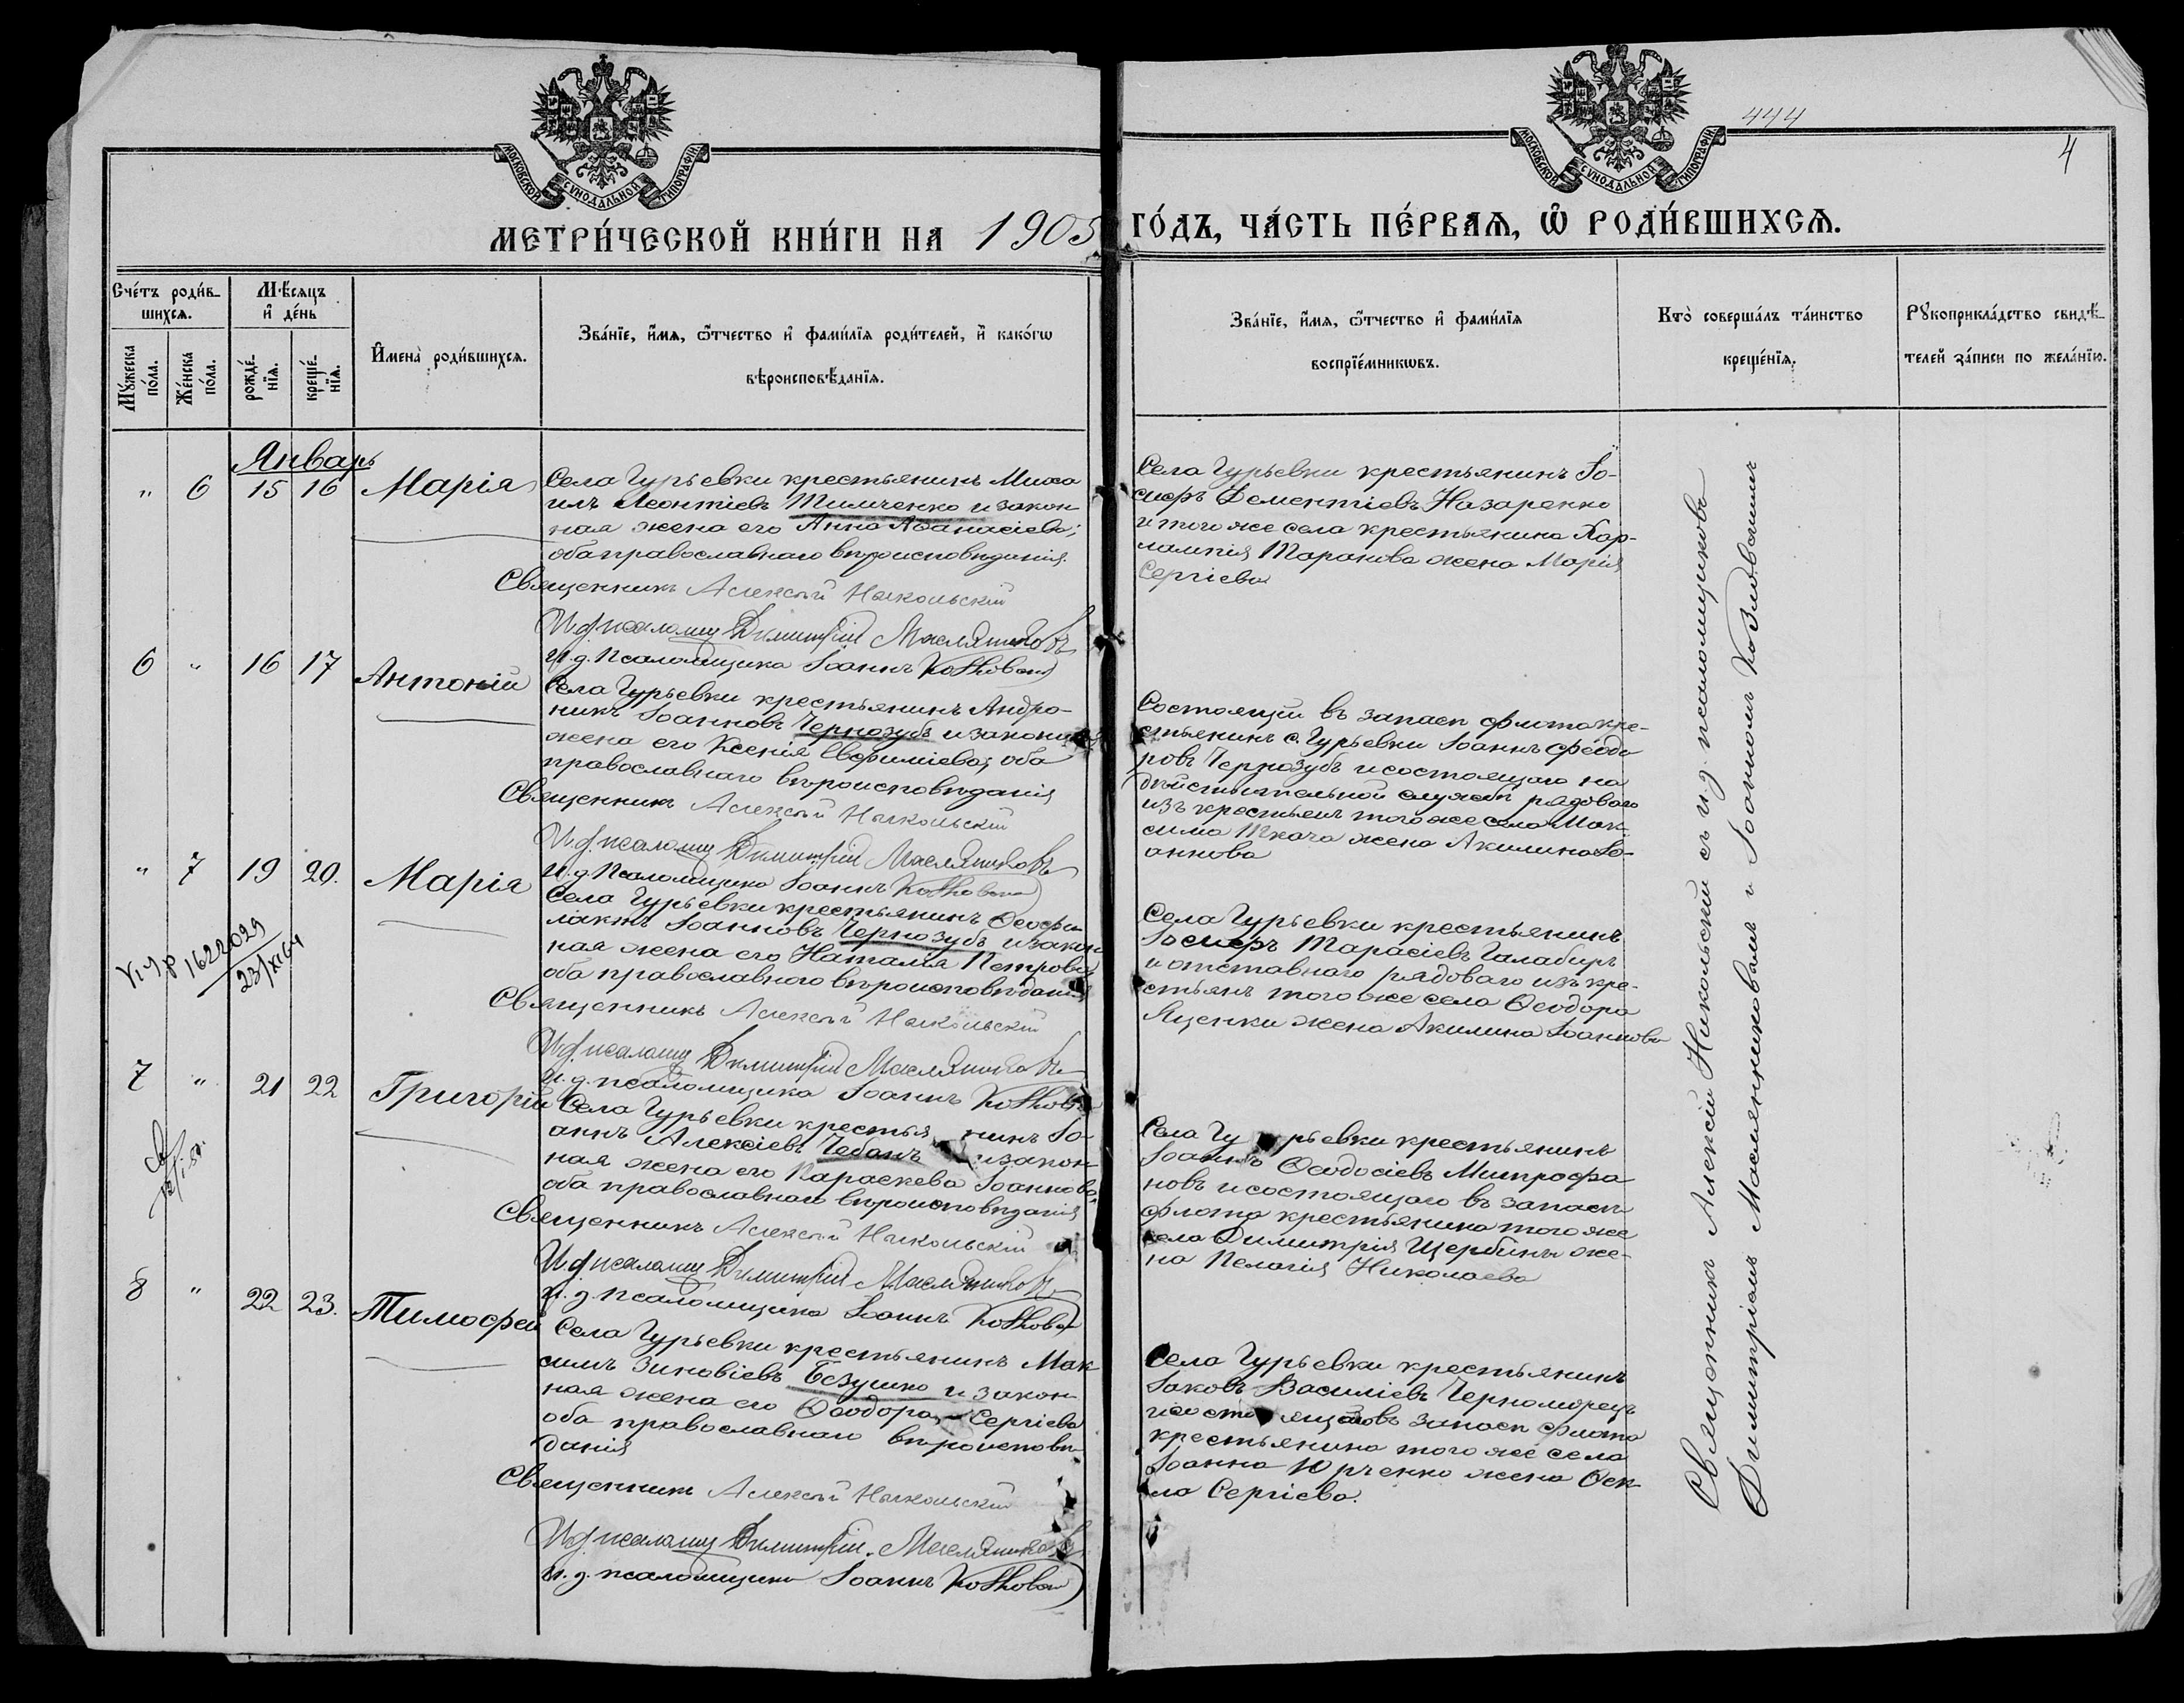 444
4
МОСКОВСКОЙ СѴНОДАЛЬНОЙ ТИПОГРАФІИ
МОСКОВСКОЙ СѴНОДАЛЬНОЙ ТИПОГРАФІИ
МЕТРИ́ЧЕСКОЙ КНИ́ГИ НА 1905 ГО́ДЪ, ЧА́СТЬ ПЕ́РВАѦ, Ѡ҆ РОДИ́ВШИХСѦ.
Сче́тъ роди́в-
шихсѧ.
Мꙋ́жеска по́ла.
Же́нска по́ла.
Мѣ́сѧцъ и҆ де́нь
рожде́-нїѧ.
креще́-нїѧ.
И҆мена̀ роди́вшихсѧ.
Зва́нїе, и҆́мѧ, ѻ҆́тчество и҆ фами́лїѧ роди́телей, и҆ како́гѡ
вѣроисповѣ́данїѧ.
Зва́нїе, и҆́мѧ, ѻ҆́тчество и҆ фами́лїѧ
воспрїе́мникѡвъ.
Кто̀ соверша́лъ та́инство
креще́нїѧ.
Рꙋкоприкла́дство свидѣ́-
телей за́писи по жела́нїю.
Январь
" 6 15 16 Марія
Села Гурьевки крестьянинъ Миха
илъ Леонтіевъ Тимченко и закон
ная жена его Анна Аѳанасіева;
оба православнаго вѣроисповѣданія.
Священникъ Алексѣй Никольскій
И.д. псаломщ Димитрій Маслянниковъ
И.д. Псаломщика Іоаннъ
Села Гурьевки крестьянинъ Іо-
сифъ Дементіевъ Назаренко
и того же села крестьянина Хар-
лампія Таранова жена Марія
Сергіева
6 " 16 17 Антоній
Села Гурьевки крестьянинъ Андро-
никъ Іоанновъ Чернозубъ и законная
жена его Ксенія Евфиміева; оба
православнаго вѣроисповѣданія
Священникъ Алексѣй Никольскій
И.д. псаломщ Димитрій Маслянниковъ
И.д. Псаломщика Іоаннъ
Состоящій въ запасѣ флота кре-
стьянинъ с. Гурьевки Іоаннъ Феодо
ровъ Чернозубъ и состоящаго на
дѣйствительной службѣ рядового
изъ крестьянъ того же села Мак-
сима Ткача жена Акилина Іо-
аннова
" 7 19 20. Марія
Села Гурьевки крестьянинъ Ѳеофи
лактъ Іоанновъ Чернозубъ и закон
ная жена его Наталія Петрова
оба православного вѣроисповѣданія
Священникъ Алексѣй Никольскій
И.д. псаломщ Димитрій Маслянниковъ
И.д. псаломщика Іоаннъ
Села Гурьевки крестьянинъ
Іосифъ Тарасіевъ Галабиръ
и отставнаго рядоваго изъ кре-
стьянъ того же села Ѳеодора
Яценки жена Акилина Іоаннова
1622029
23/XI 64
7 " 21 22 Григорій
Села Гурьевки крестьянинъ Іо-
аннъ Алексіевъ Чебанъ и закон
ная жена его Параскева Іоаннова,
оба православнаго вѣроисповѣданія
Священникъ Алексѣй Никольскій
И.д. псаломщ Димитрій Маслянниковъ
И.д. псаломщика Іоаннъ
Села Гурьевки крестьянинъ
Іоаннъ Ѳеодосіевъ Митрофа
новъ и состоящаго въ запасѣ
флота крестьянина того же
села Димитрія Щербины же-
на Пелагія Николаева
8 " 22 23. Тимофей
Села Гурьевки крестьянинъ Мак
симъ Зиновіевъ Безушко и закон
ная жена его Ѳеодора Сергіева
оба православнаго вѣроисповѣ-
данія
Священникъ Алексѣй Никольскій
И.д. псаломщ Димитрій Маслянниковъ
И.д. псаломщика Іоаннъ
Села Гурьевки крестьянинъ
Іаковъ Василіевъ Черноморецъ
и состоящаго въ запасѣ флота
крестьянина того же села
Іоанна Юрченко жена Ѳек
ла Сергіева.
Священникъ Алексій Никольскій съ и.д. псаломщиковъ
Димитріемъ Маслянниковымъ и Іоанномъ Козловскимъ